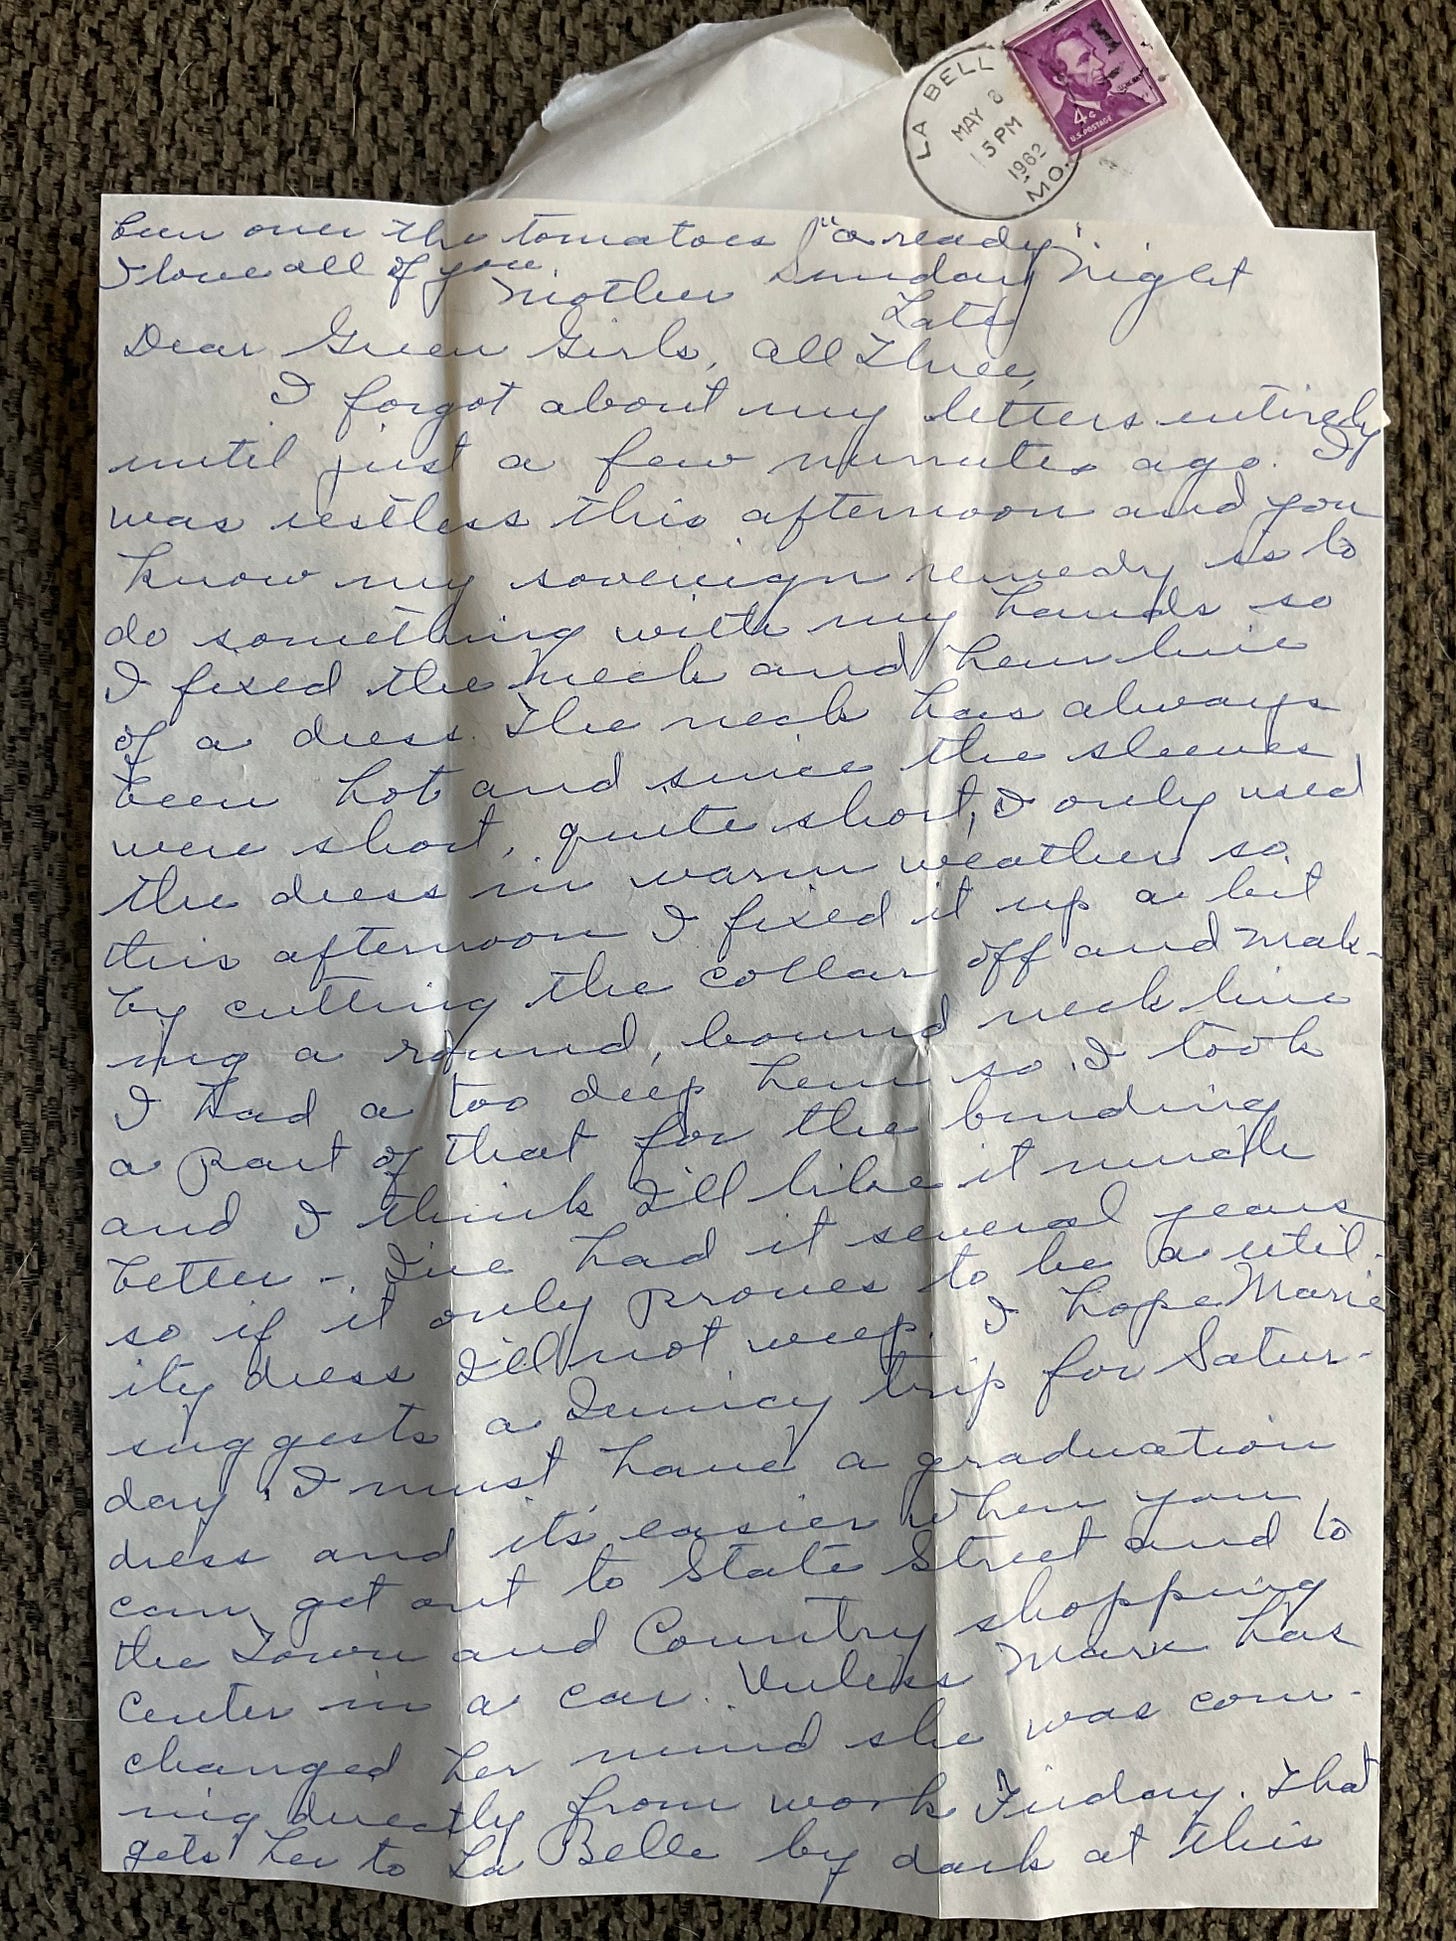 LA BELL
MAY 8
5 PM
1962
MO.
4¢
U.S. POSTAGE
been over the tomatoes "a ready"
I love all of you
Mother
Sunday Night
Late
Dear Green Girls, All Three,
I forgot about my letters entirely
until just a few minutes ago. I
was restless this afternoon and you
know my sovereign remedy is to
do something with my hands so
I fixed the neck and hem line
of a dress. The neck has always
been hot and since the sleeves
were short, quite short, I only used
the dress in warm weather so
this afternoon I fixed it up a bit
by cutting the collar off and mak-
ing a round, bound neck line
I had a too deep hem so I took
a part of that for the binding
and I think I'll like it much
better - I've had it several years
so if it only proves to be a util-
ity dress I'll not weep. I hope Marie
suggests a Quincy trip for Satur-
day. I must have a graduation
dress and it's easier when you
can get out to State Street and to
the Town and Country shopping
Center in a car. Unless Mark has
changed her mind she was com-
ing directly from work Friday. That
gets her to La Belle by dark at this